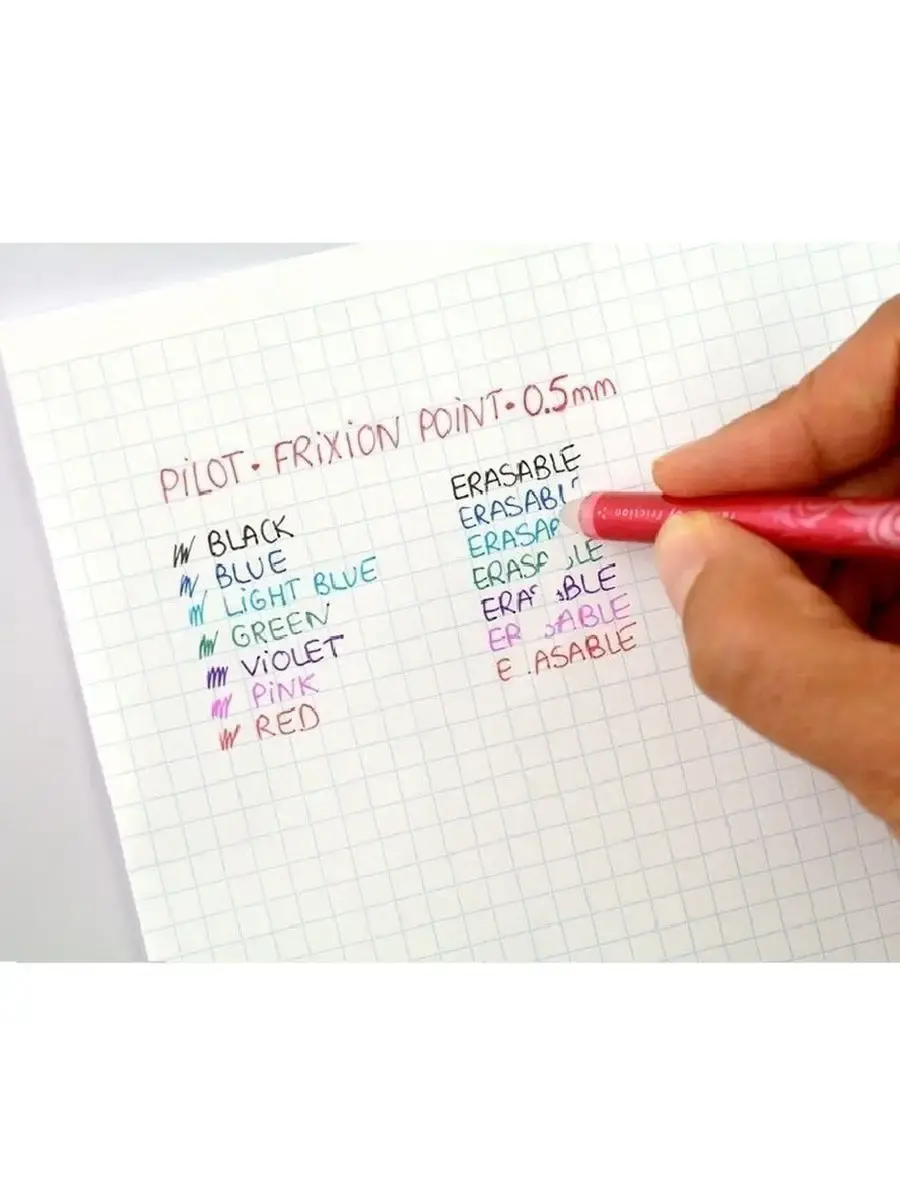 PiLOT • FRiXiON POiNT • 0.5mm
BLACK
BLUE
LiGHT BLUE
GREEN
ViOLET
PiNK
RED
ERASABLE
ERASABL
ERASA
ERASA LE
ERA ABLE
ER ABLE
E ASABLE
friction